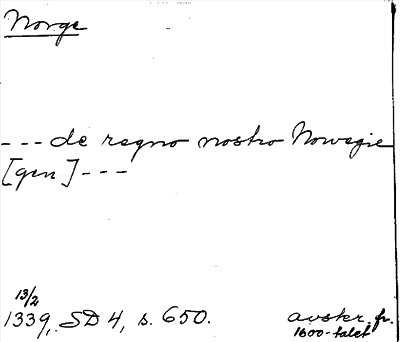 Norge
--- de regno nostro Norwegie
[gen] ---
13/2
1339, SD 4, s. 650. avskr. fr.
1600-talet